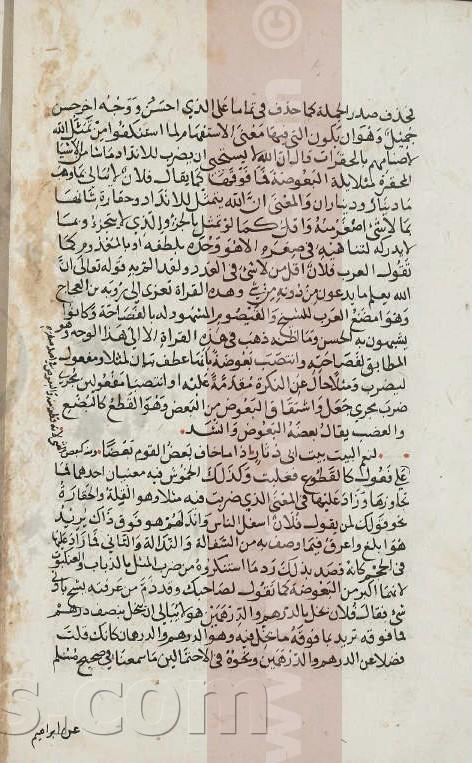 فحذف صدر الجملة كما حذف في تماما على الذي احسن ووجه اخر حسن
جميل وهو ان تكون التي فيها معنى الاستفهام لما استنكفوا من تمثيل الله
لاصنامهم بالمحقرات قال ان الله لا يستحيي ان يضرب للانداد ما شاء من الاشيا
المحقرة مثلا بله البعوضة فما فوقها كما يقال فلان لا يبالي بما وهب
ما دينار وديناران والمعنى ان لله ان يتمثل للانداد وحقارة شانها
بما لا شي اصغر منه واقل كما لو تمثل بالجزو الذي لا يتجزء وبما
لا يدركه لتناهيه في صغره الا هو وحده بلطفه او بالمعدوم كما
تقول العرب فلان اقل من لا شي في العدد ولقد الم به قوله تعالى ان
الله يعلم ما يدعون من دونه من شي وهذه القراة تعزى الى روبة بن العجاج
وهو امضغ العرب للشيح والقيصوم المشهود له بالفصاحة وكانوا
يشبهون به الحسن وما اظنه ذهب في هذه القراة الا الى هذا الوجه وهو
المطابق لفصاحته وانتصب بعوضة بانها عطف بيان لمثلا او مفعول
ليضرب ومثلا حال عن النكرة مقدمة عليه او انتصبا مفعولين فجرى
ضرب مجرى جعل واشتقاق البعوض من البعض وهو القطع كالبضع
والعضب يقال بعضه البعوض وانشد
لنعم البيت بيت ابي دثار اذا ما خاف بعض القوم بعضا ومنه بعض
على فعول كالقطوع فغلبت وكذلك الخموش فيه معنيان احدهما فما
تجاوزها وزاد عليها في المعنى الذي ضربت فيه مثلا وهو القلة والحقارة
نحو قولك لمن يقول فلان اسفل الناس وانذلهم هو فوق ذاك تريد
هو ابلغ واعرق فيما وصف به من السفالة والنذالة والثاني فما زاد عليها
في الحجم كانه قصد بذلك رد ما استنكروه من ضرب المثل بالذباب والعنكبوت
لانهما اكبر من البعوضة كما تقول لصاحبك وقد ذم من عرفته يشح بادنى
شي فقال فلان بخل بالدرهم والدرهمين هو لا يبالي ان يبخل بنصف درهم
فما فوقه تريد بما فوقه ما بخل فيه وهو الدرهم والدرهمان كانك قلت
فضلا عن الدرهم والدرهمين ونحوه في الاحتمالين ما سمعناه في صحيح مسلم
عن ابراهيم
s.com
www
©